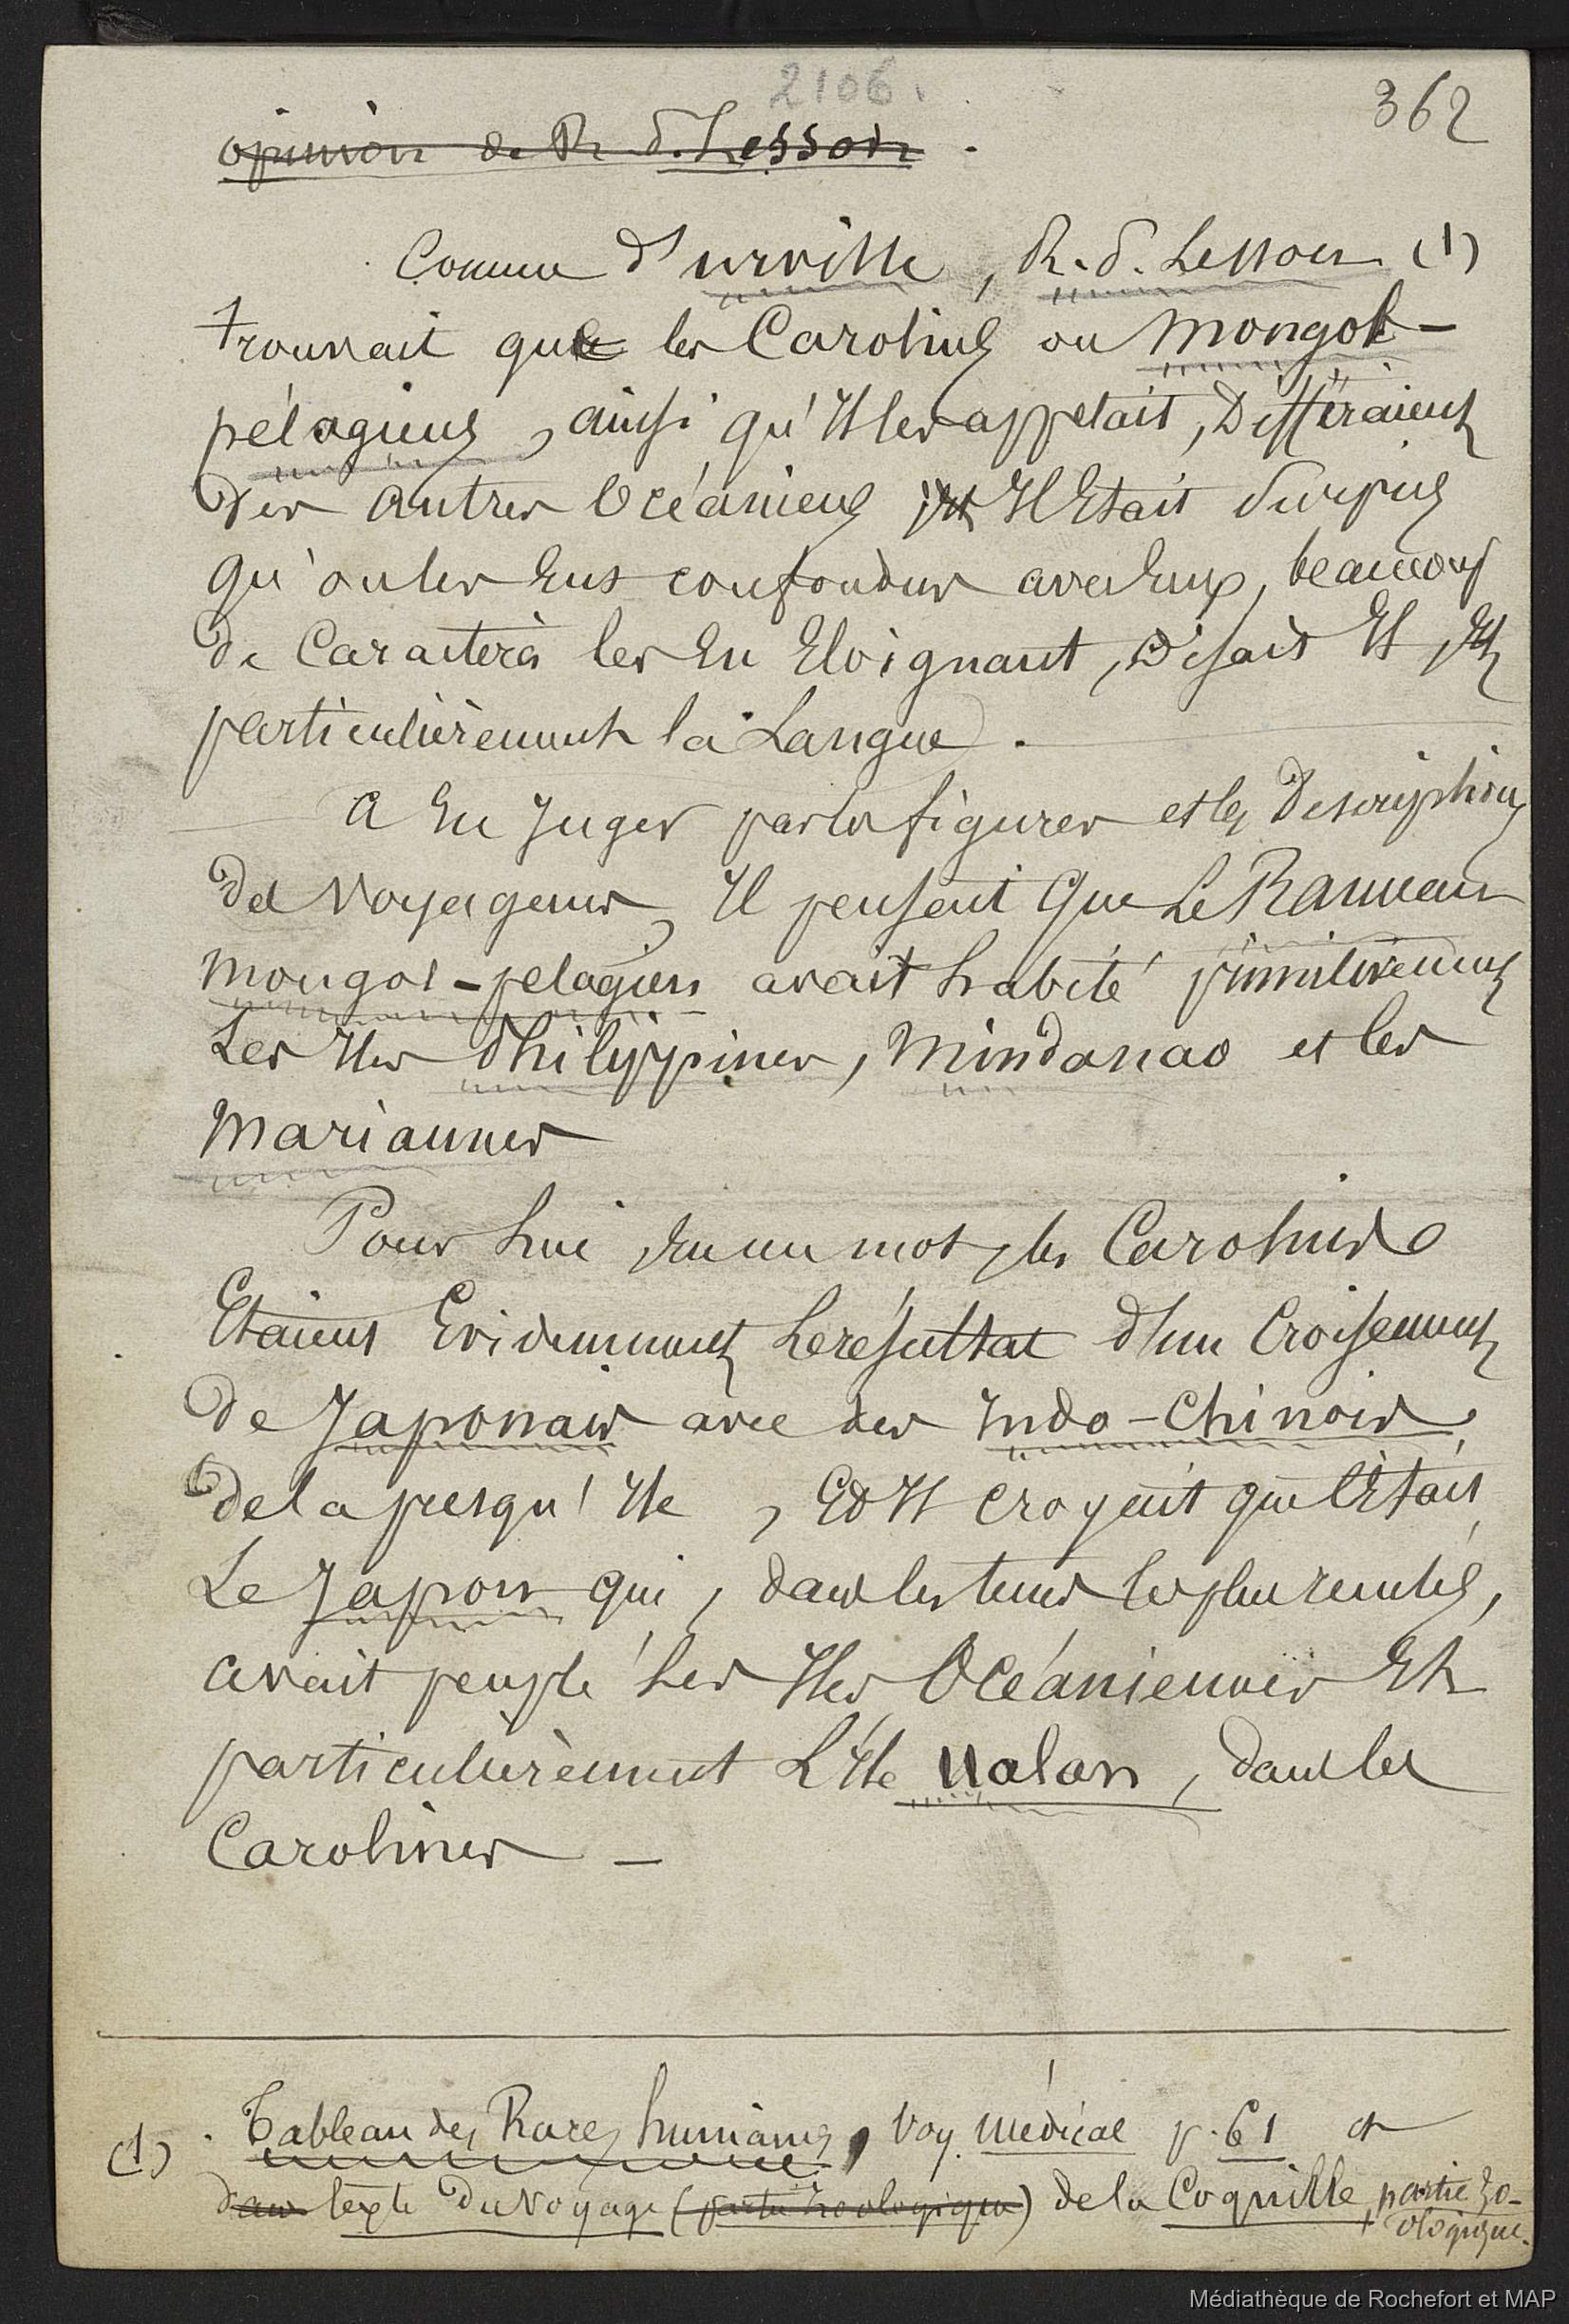 2106.
362
opinion de R. P. Lesson.
Comme d'urville, R. P. Lesson (1)
trouvait que les Carolins ou mongol-
pélagiens, ainsi qu'Il les appelait, Différaient
Des autres Océaniens, Et Il Etait Surpris
qu'on les Eut confondus avec Eux, beaucoup
De Caractères les En Eloignant, Disait Il, Et
particulièrement la Langue.
A En Juger par les figures et les Descriptions
Des Voyageurs, Il pensait que Le Rameau
mongol-pélagien avait habité primitivement
Les Iles Philippines, Mindanao et les
Mariannes
Pour Lui, En un mot, les Carolins
Etaient Evidemment Le résultat d'un Croisement
De Japonais avec des Indo-Chinois
De la presqu'Ile, Et Il croyait que c'Etait
Le Japon qui, dans les temps les plus reculés,
avait peuplé Les Iles Océaniennes Et
particulièrement L'Ile Ualan, dans les
Carolines —
(1). Tableau des Races humaines, Voy. médical p. 61 et
dans texte Du Voyage (partie zoologique) de la Coquille, partie zo-
ologique.
Médiathèque de Rochefort et MAP